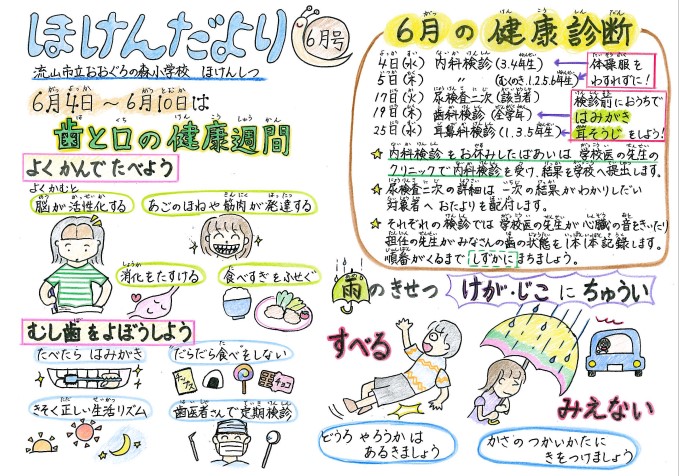 ほけんだより 6月号
流山市立おおぐろの森小学校 ほけんしつ
6月4日～6月10日は
歯と口の健康週間
よくかんでたべよう
よくかむと
脳が活性化する
あごのほねや筋肉が発達する
消化をたすける
食べすぎをふせぐ
むし歯をよぼうしよう
たべたら はみがき
だらだら食べをしない
チョコ
きそく正しい生活リズム
歯医者さんで定期検診
6月の健康診断
4日(水) 内科検診(3.4年生)
5日(木) 〃 (むくのき.1.2.5.6年生)
体操服をわすれずに!
17日(火) 尿検査二次(該当者)
19日(木) 歯科検診(全学年)
25日(水) 耳鼻科検診(1.3.5年生)
検診前におうちで
はみがき
耳そうじをしよう!
★ 内科検診をお休みしたばあいは 学校医の先生の
クリニックで内科検診を受け、結果を学校へ提出します。
★ 尿検査二次の詳細は 一次の結果がわかりしだい
対象者へ おたよりを配付します。
★ それぞれの検診では 学校医の先生が 心臓の音をきいたり
担任の先生が みなさんの歯の状態を 1本1本記録します。
順番がくるまで しずかに まちましょう。
雨のきせつ けが・じこに ちゅうい
すべる
みえない
どうろ やろうかは
あるきましょう
かさの つかいかたに
きをつけましょう